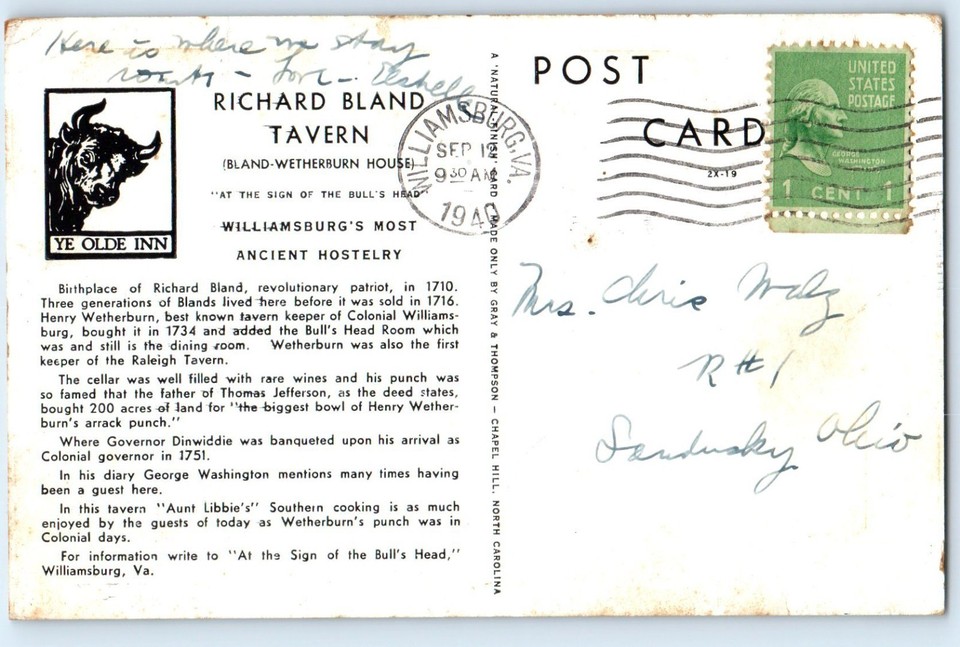 Here is where we stay
- Love -
RICHARD BLAND
TAVERN
(BLAND-WETHERBURN HOUSE)
"AT THE SIGN OF THE BULL'S HEAD"
WILLIAMSBURG'S MOST
ANCIENT HOSTELRY
YE OLDE INN
Birthplace of Richard Bland, revolutionary patriot, in 1710.
Three generations of Blands lived here before it was sold in 1716.
Henry Wetherburn, best known tavern keeper of Colonial Williams-
burg, bought it in 1734 and added the Bull's Head Room which
was and still is the dining room. Wetherburn was also the first
keeper of the Raleigh Tavern.
The cellar was well filled with rare wines and his punch was
so famed that the father of Thomas Jefferson, as the deed states,
bought 200 acres of land for "the biggest bowl of Henry Wether-
burn's arrack punch."
Where Governor Dinwiddie was banqueted upon his arrival as
Colonial governor in 1751.
In his diary George Washington mentions many times having
been a guest here.
In this tavern "Aunt Libbie's" Southern cooking is as much
enjoyed by the guests of today as Wetherburn's punch was in
Colonial days.
For information write to "At the Sign of the Bull's Head,"
Williamsburg, Va.
A 'NATURAL FINISH' CARD MADE ONLY BY GRAY & THOMPSON - CHAPEL HILL, NORTH CAROLINA
POST
CARD
2X-19
WILLIAMSBURG, VA.
SEP 12
9 30 AM
1940
UNITED
STATES
POSTAGE
GEORGE
WASHINGTON
1 CENT 1
Mrs. Chris Walz
R#1
Sandusky Ohio